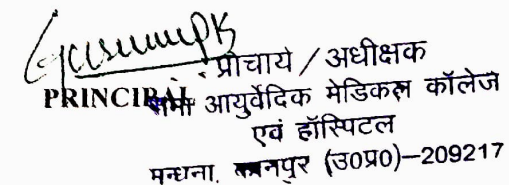 प्राचार्य / अधीक्षक
PRINCIPAL
रामा आयुर्वेदिक मेडिकल कॉलेज
एवं हॉस्पिटल
मन्धना, कानपुर (उ0प्र0)–209217